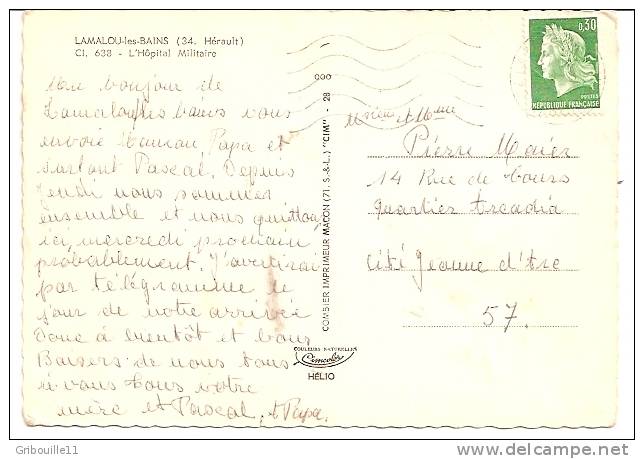 LAMALOU-les-BAINS (34. Hérault)
Cl. 638 - L'Hôpital Militaire
Un bonjour de
Lamalou les bains vous
envoie Maman Papa et
surtout Pascal. Depuis
Jeudi nous sommes
ensemble et nous quittons
ici, mercredi prochain
probablement. J'avertirai
par télégramme le
jour de notre arrivée
Donc à bientôt et bons
Baisers de nous tous
à vous tous votre
mère et Pascal, et Papa.
COMBIER IMPRIMEUR MACON (71. S.-&-L.) "CIM" - 28
000
COULEURS NATURELLES
Cimcolor
HÉLIO
0,30
POSTES
RÉPUBLIQUE FRANÇAISE
Msieur et Mme
Pierre Maier
14 Rue de Tours
Quartier Arcadia
Cité Jeanne d'Arc
57.
Gribouille11
www.delcampe.net